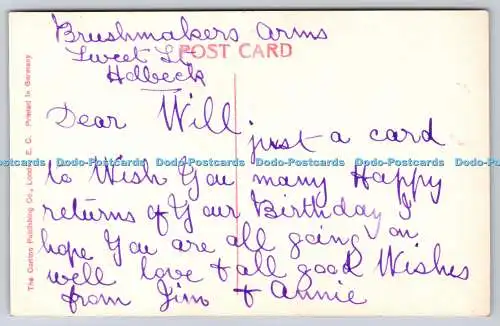 Brushmakers Arms
Sweet St
Holbeck
POST CARD
Dear Will
just a card
to Wish You many Happy
returns of Your Birthday I
hope You are all going on
well love & all good Wishes
from Jim & Annie
The Carlton Publishing Co., London, E. C. Printed in Germany
Dodo-Postcards Dodo-Postcards Dodo-Postcards Dodo-Postcards Dodo-Postcards Dodo-Postcards